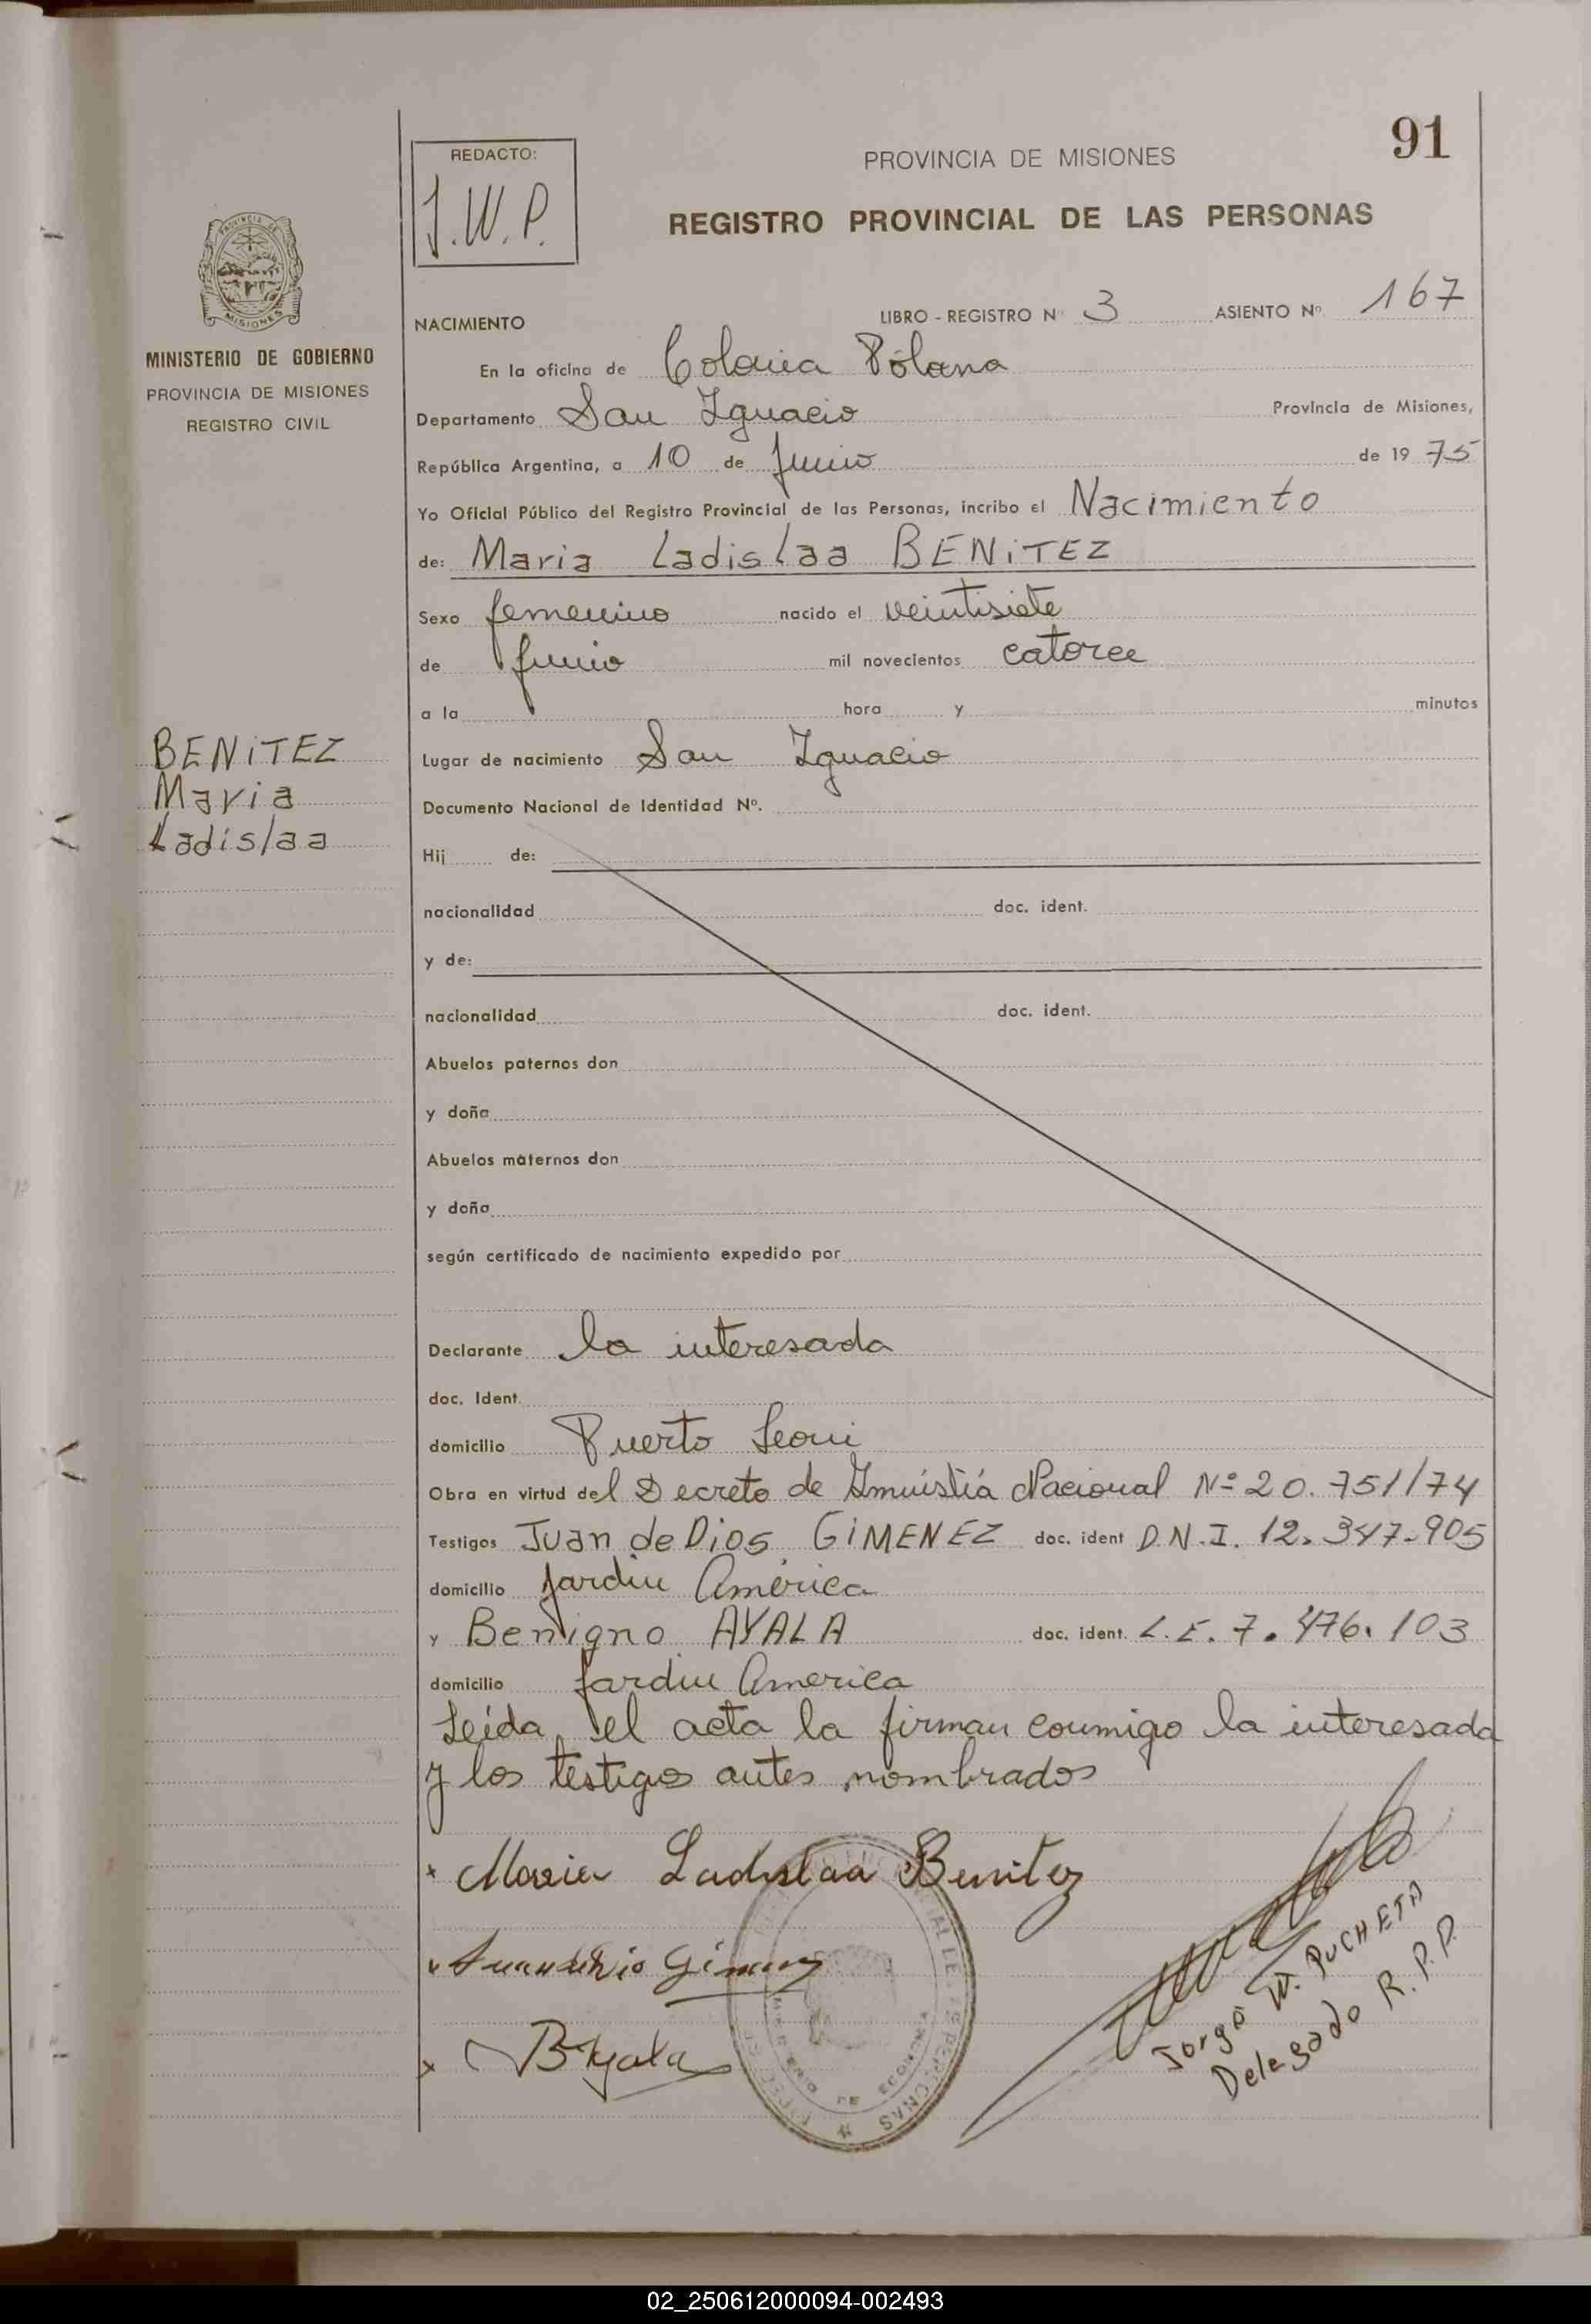 91
REDACTO:
J.W.P.
PROVINCIA DE MISIONES
REGISTRO PROVINCIAL DE LAS PERSONAS
PROVINCIA DE
MISIONES
MINISTERIO DE GOBIERNO
PROVINCIA DE MISIONES
REGISTRO CIVIL
BENITEZ
Maria
Ladislaa
NACIMIENTO LIBRO - REGISTRO Nº 3 ASIENTO Nº 167
En la oficina de Colonia Polana
Departamento San Ignacio Provincia de Misiones,
República Argentina, a 10 de Junio de 1975
Yo Oficial Público del Registro Provincial de las Personas, incribo el Nacimiento
de: Maria Ladislaa BENITEZ
Sexo femenino nacido el veintisiete
de Junio mil novecientos catorce
a la hora y minutos
Lugar de nacimiento San Ignacio
Documento Nacional de Identidad Nº.
Hij de:
nacionalidad doc. ident.
y de:
nacionalidad doc. ident.
Abuelos paternos don
y doña
Abuelos maternos don
y doña
según certificado de nacimiento expedido por
Declarante la interesada
doc. Ident.
domicilio Puerto Leoni
Obra en virtud del Decreto de Amnistiá Nacional Nº 20.751/74
Testigos Juan de Dios GIMENEZ doc. ident D.N.I. 12.347.905
domicilio Jardin América
y Benigno AYALA doc. ident. L.E. 7.476.103
domicilio Jardin America
Leída el acta la firman conmigo la interesada
y los testigos antes nombrados
x Maria Ladislaa Benitez
B Ayala
Jorge W. PUCHETA
Delegado R.P.P.
02_250612000094-002493